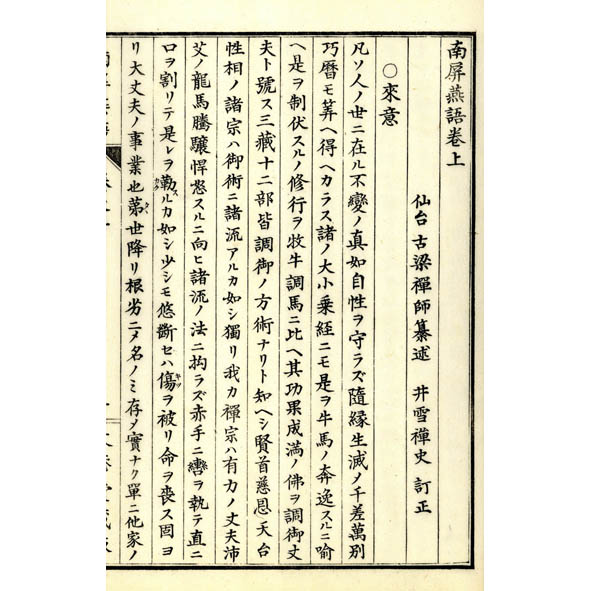 南屏燕語卷上
仙台 古梁禪師纂述 井雪禪史 訂正
○來意
凡ソ人ノ世ニ在ル不變ノ真如自性ヲ守ラズ隨縁生滅ノ千差萬别
巧曆モ筭ヘ得ヘカラス諸ノ大小乘經ニモ是ヲ牛馬ノ奔逸スルニ喻
ヘ是ヲ制伏スルノ修行ヲ牧牛調馬ニ比ヘ其功果成滿ノ佛ヲ調御丈
夫ト號ス三藏十二部皆調御ノ方術ナリト知ヘシ賢首慈恩天台
性相ノ諸宗ハ御術ニ諸流アルカ如シ獨リ我カ禪宗ハ有力ノ丈夫沛
艾ノ龍馬騰驤悍怒スルニ向ヒ諸流ノ法ニ拘ラズ赤手ニ轡ヲ執テ直ニ
口ヲ割リテ是レヲ勒スルカ如シ少シモ悠斷セハ傷ヲ被リ命ヲ喪ス固ヨ
リ大丈夫ノ事業也第世降リ根劣ニメ名ノミ存メ實ナク單ニ他家ノ